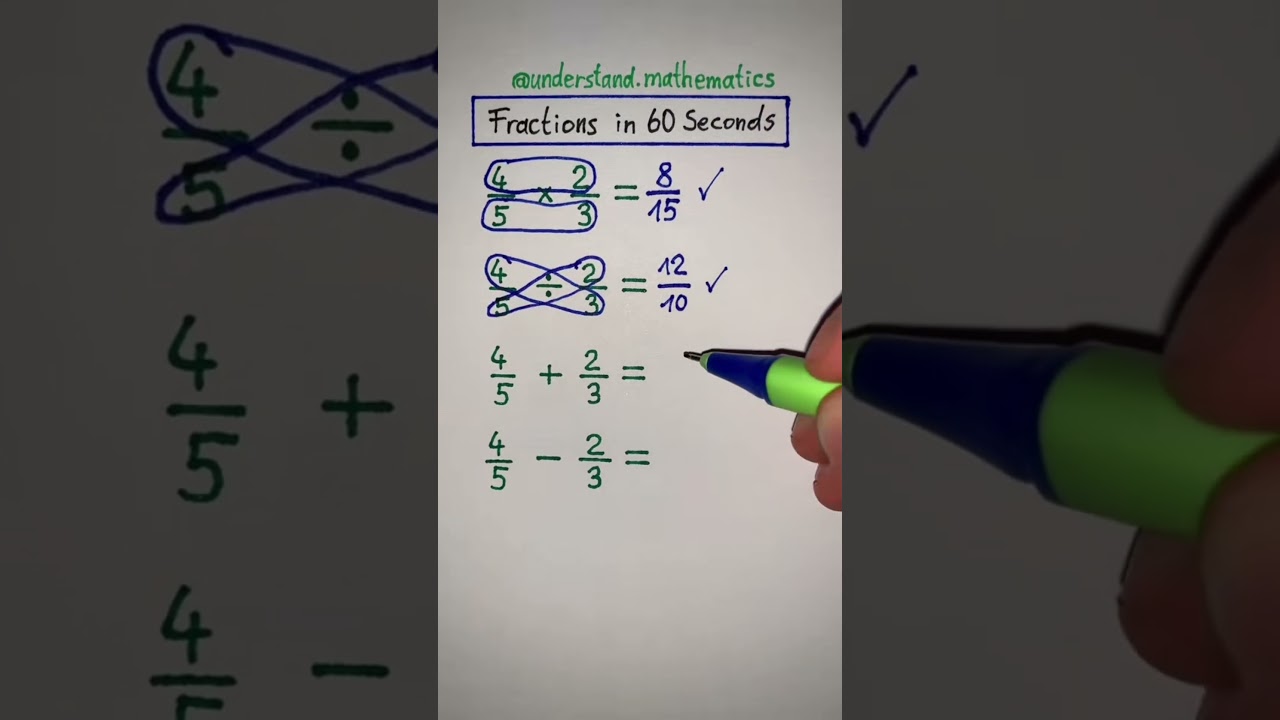 @understand.mathematics
Fractions in 60 Seconds
4/5 × 2/3 = 8/15 ✓
4/5 ÷ 2/3 = 12/10 ✓
4/5 + 2/3 =
4/5 − 2/3 =